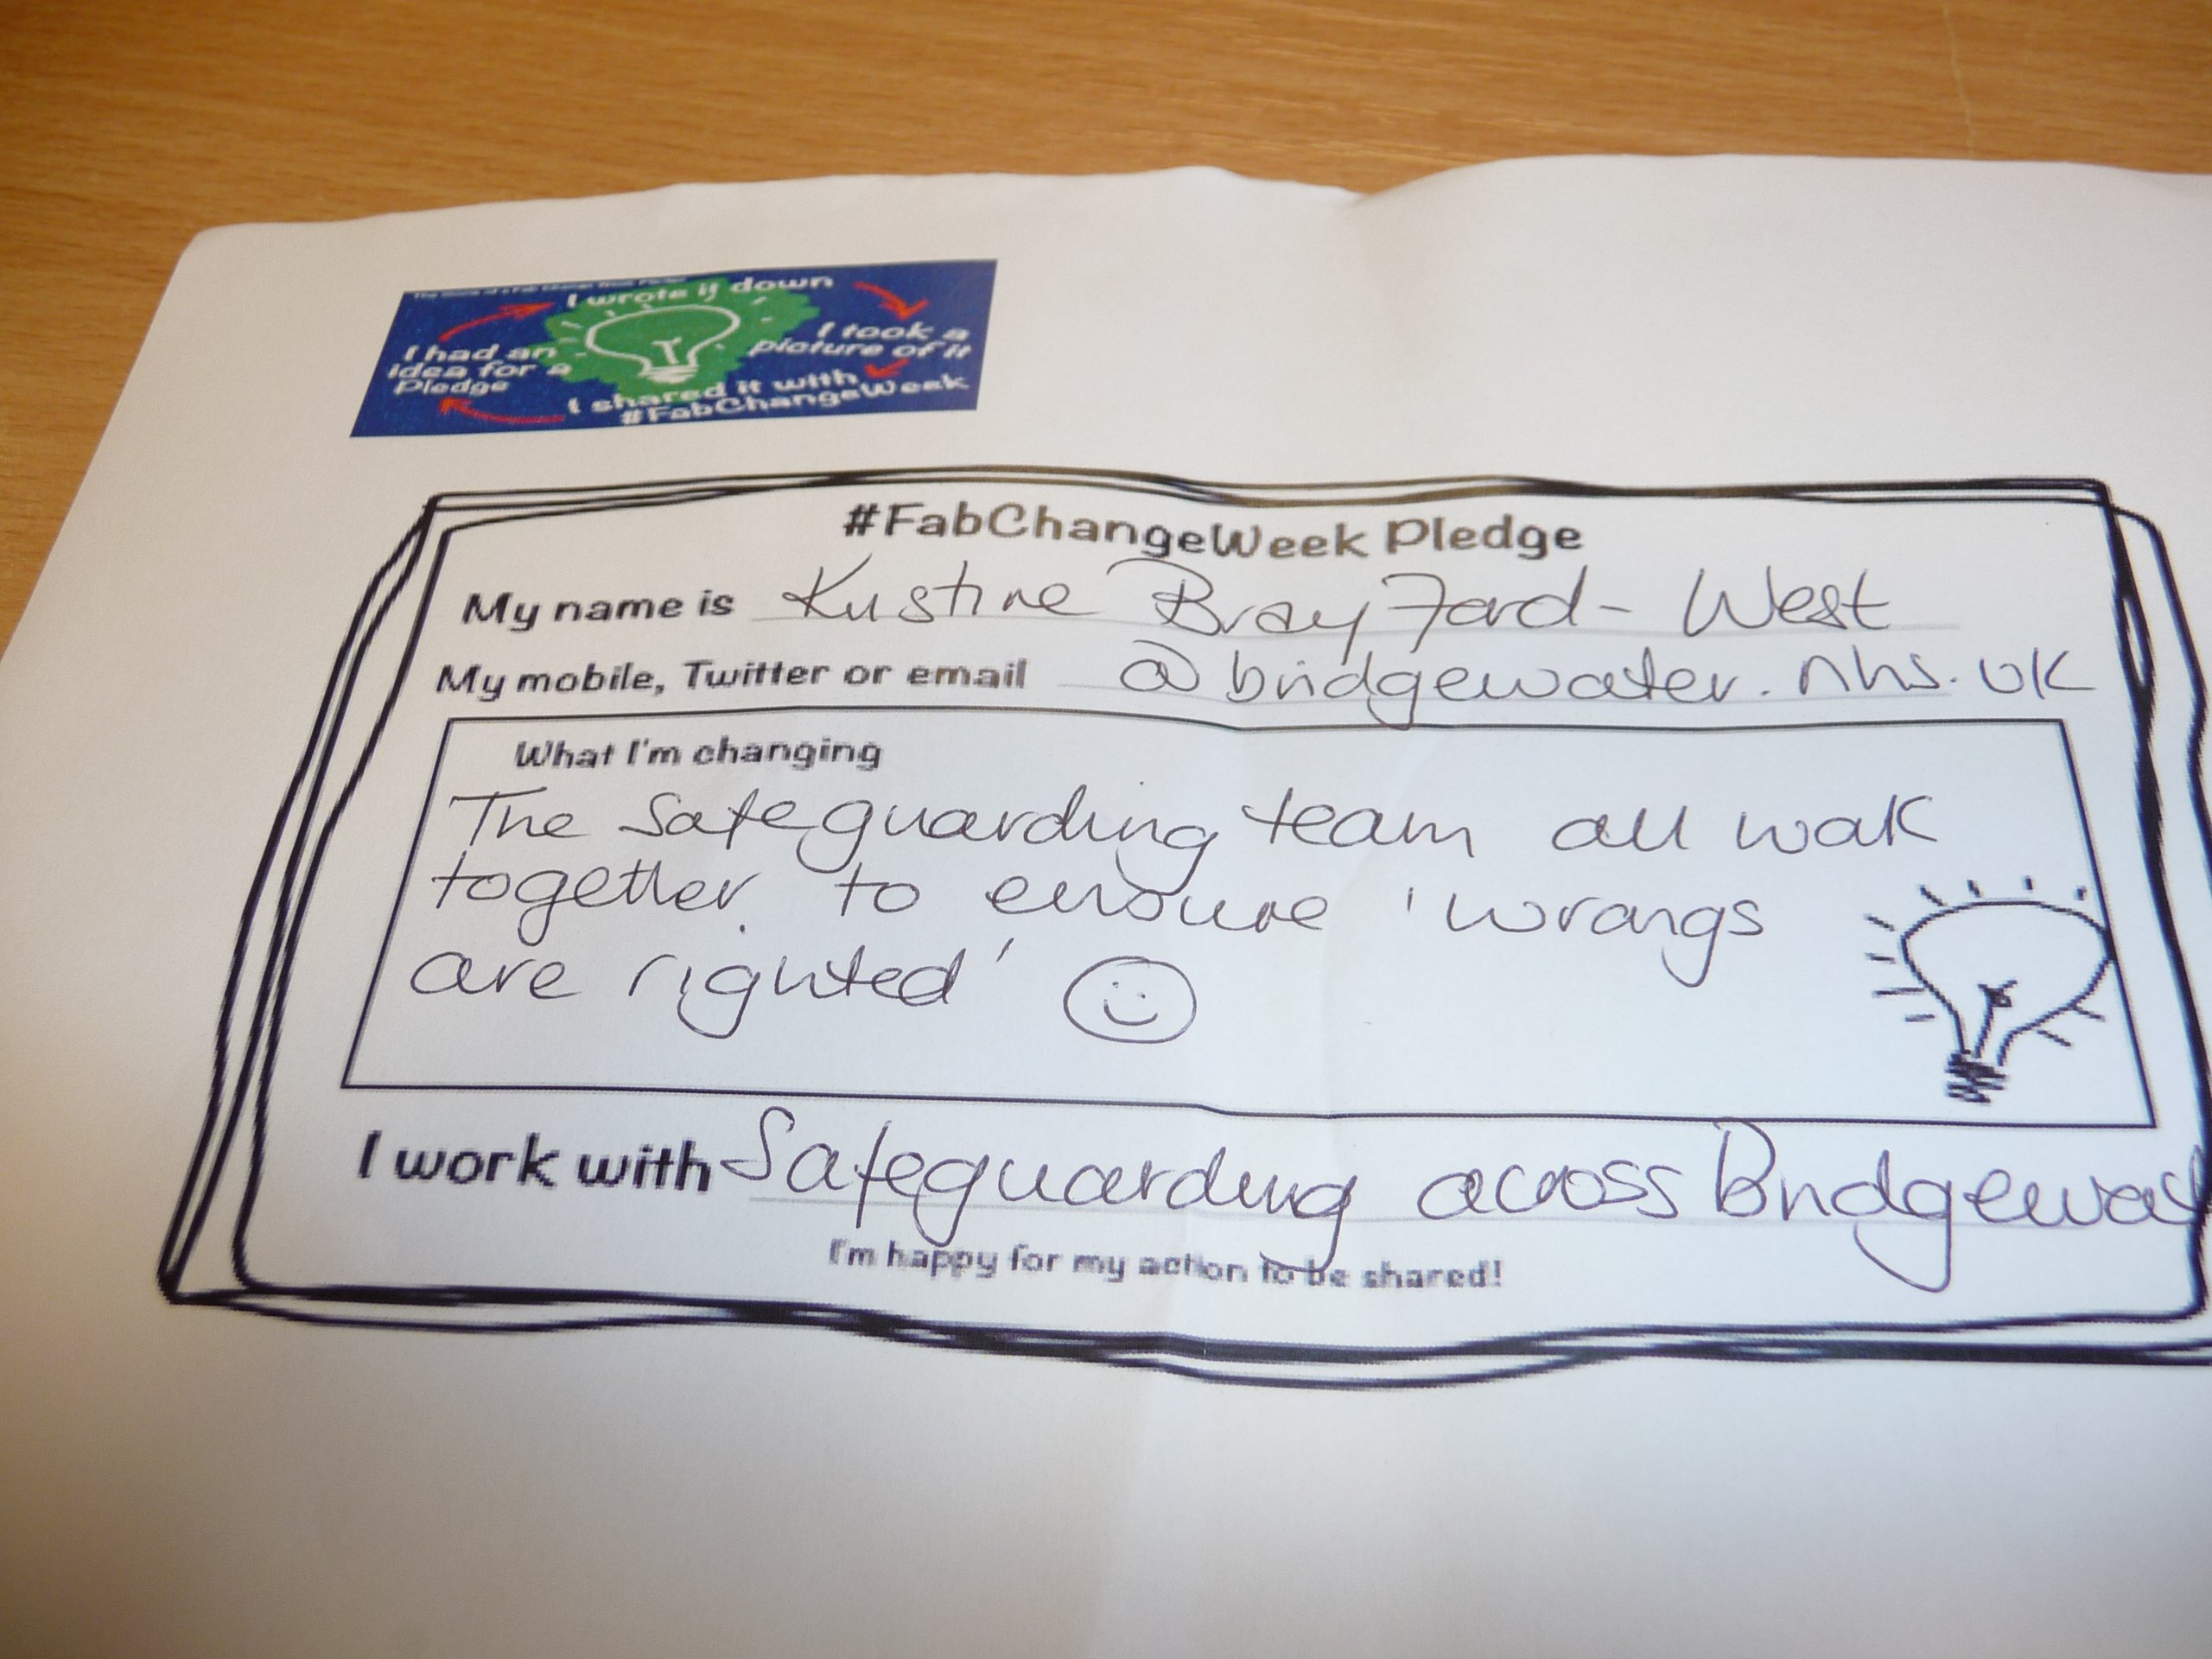 I wrote it down
I took a
picture of it
I had an
idea for a
Pledge
I shared it with
#FabChangeWeek
#FabChangeWeek Pledge
My name is Kirstine Brayford-West
My mobile, Twitter or email @bridgewater.nhs.uk
What I'm changing
The Safeguarding team all work
together to ensure 'wrongs
are righted'
I work with Safeguarding across Bridgewat
I'm happy for my action to be shared!